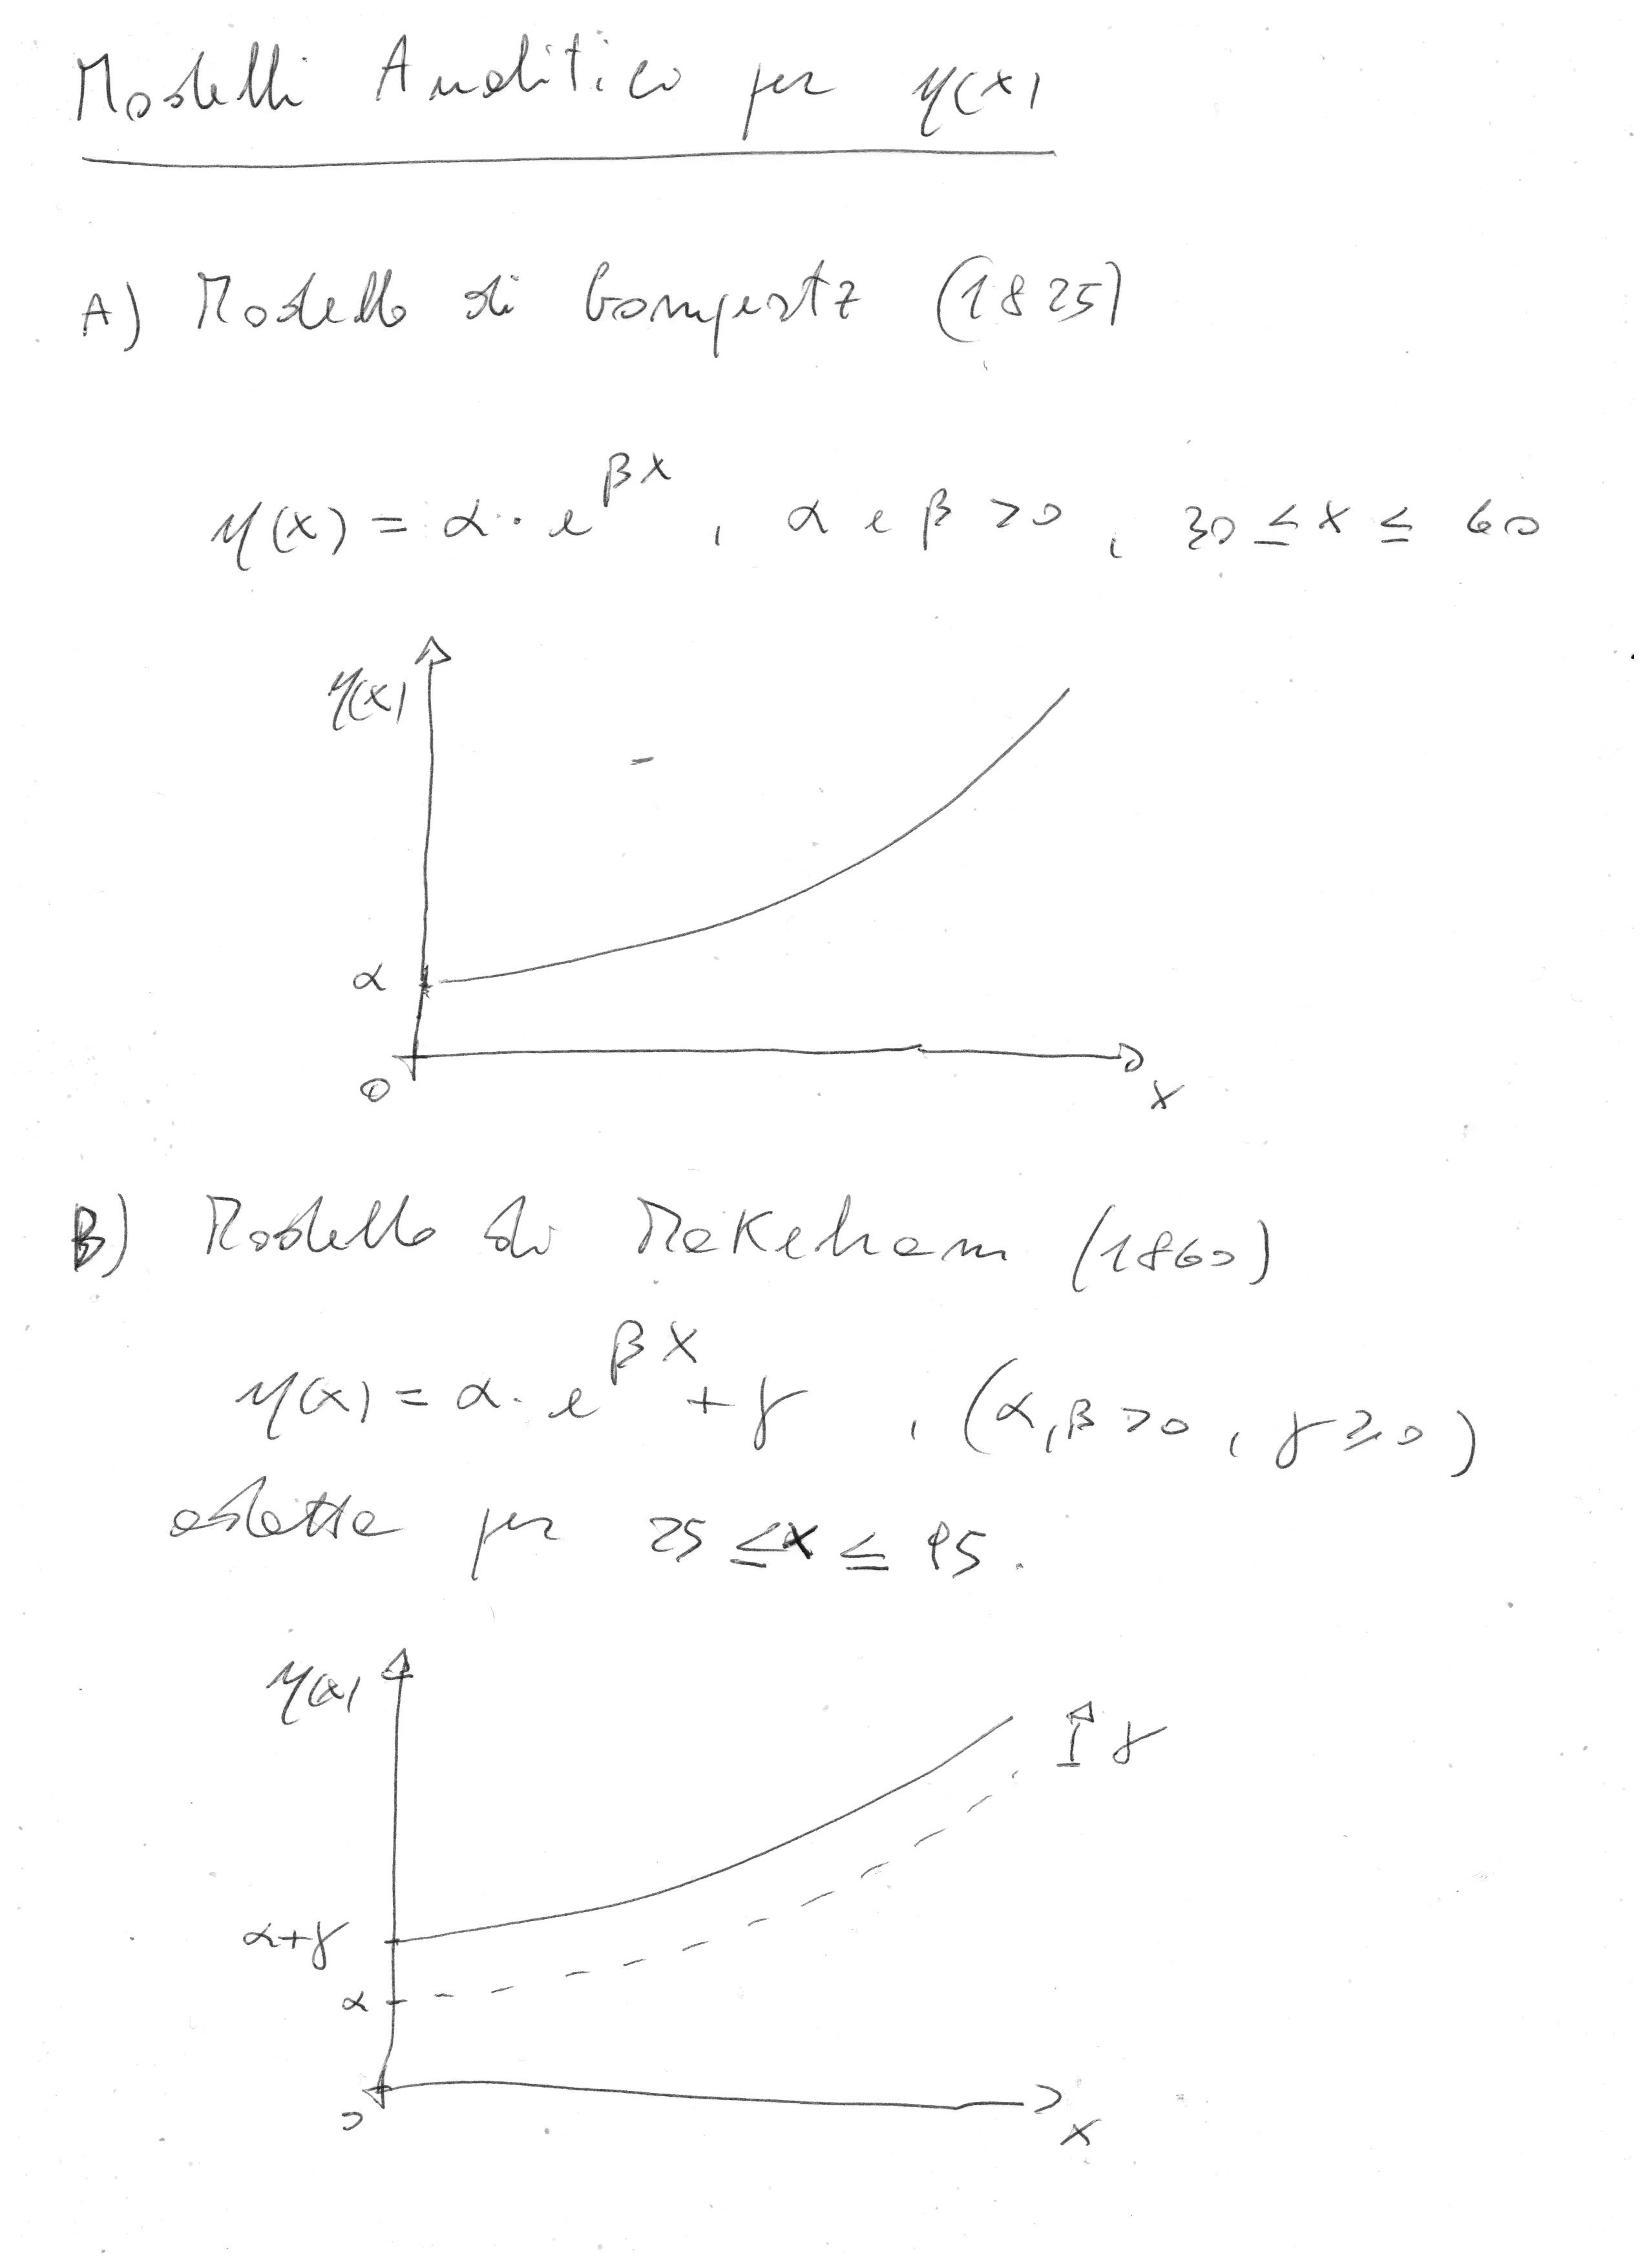 Modelli Analitici per μ(x)
A) Modello di Gompertz (1825)
μ(x) = α · e^{βx} , α e β > 0 , 30 ≤ x ≤ 60
μ(x)
α
0
x
B) Modello di Makeham (1860)
μ(x) = α · e^{βx} + γ , (α, β > 0 , γ ≥ 0)
adatta per 25 ≤ x ≤ 95.
μ(x)
γ
α+γ
α
0
x